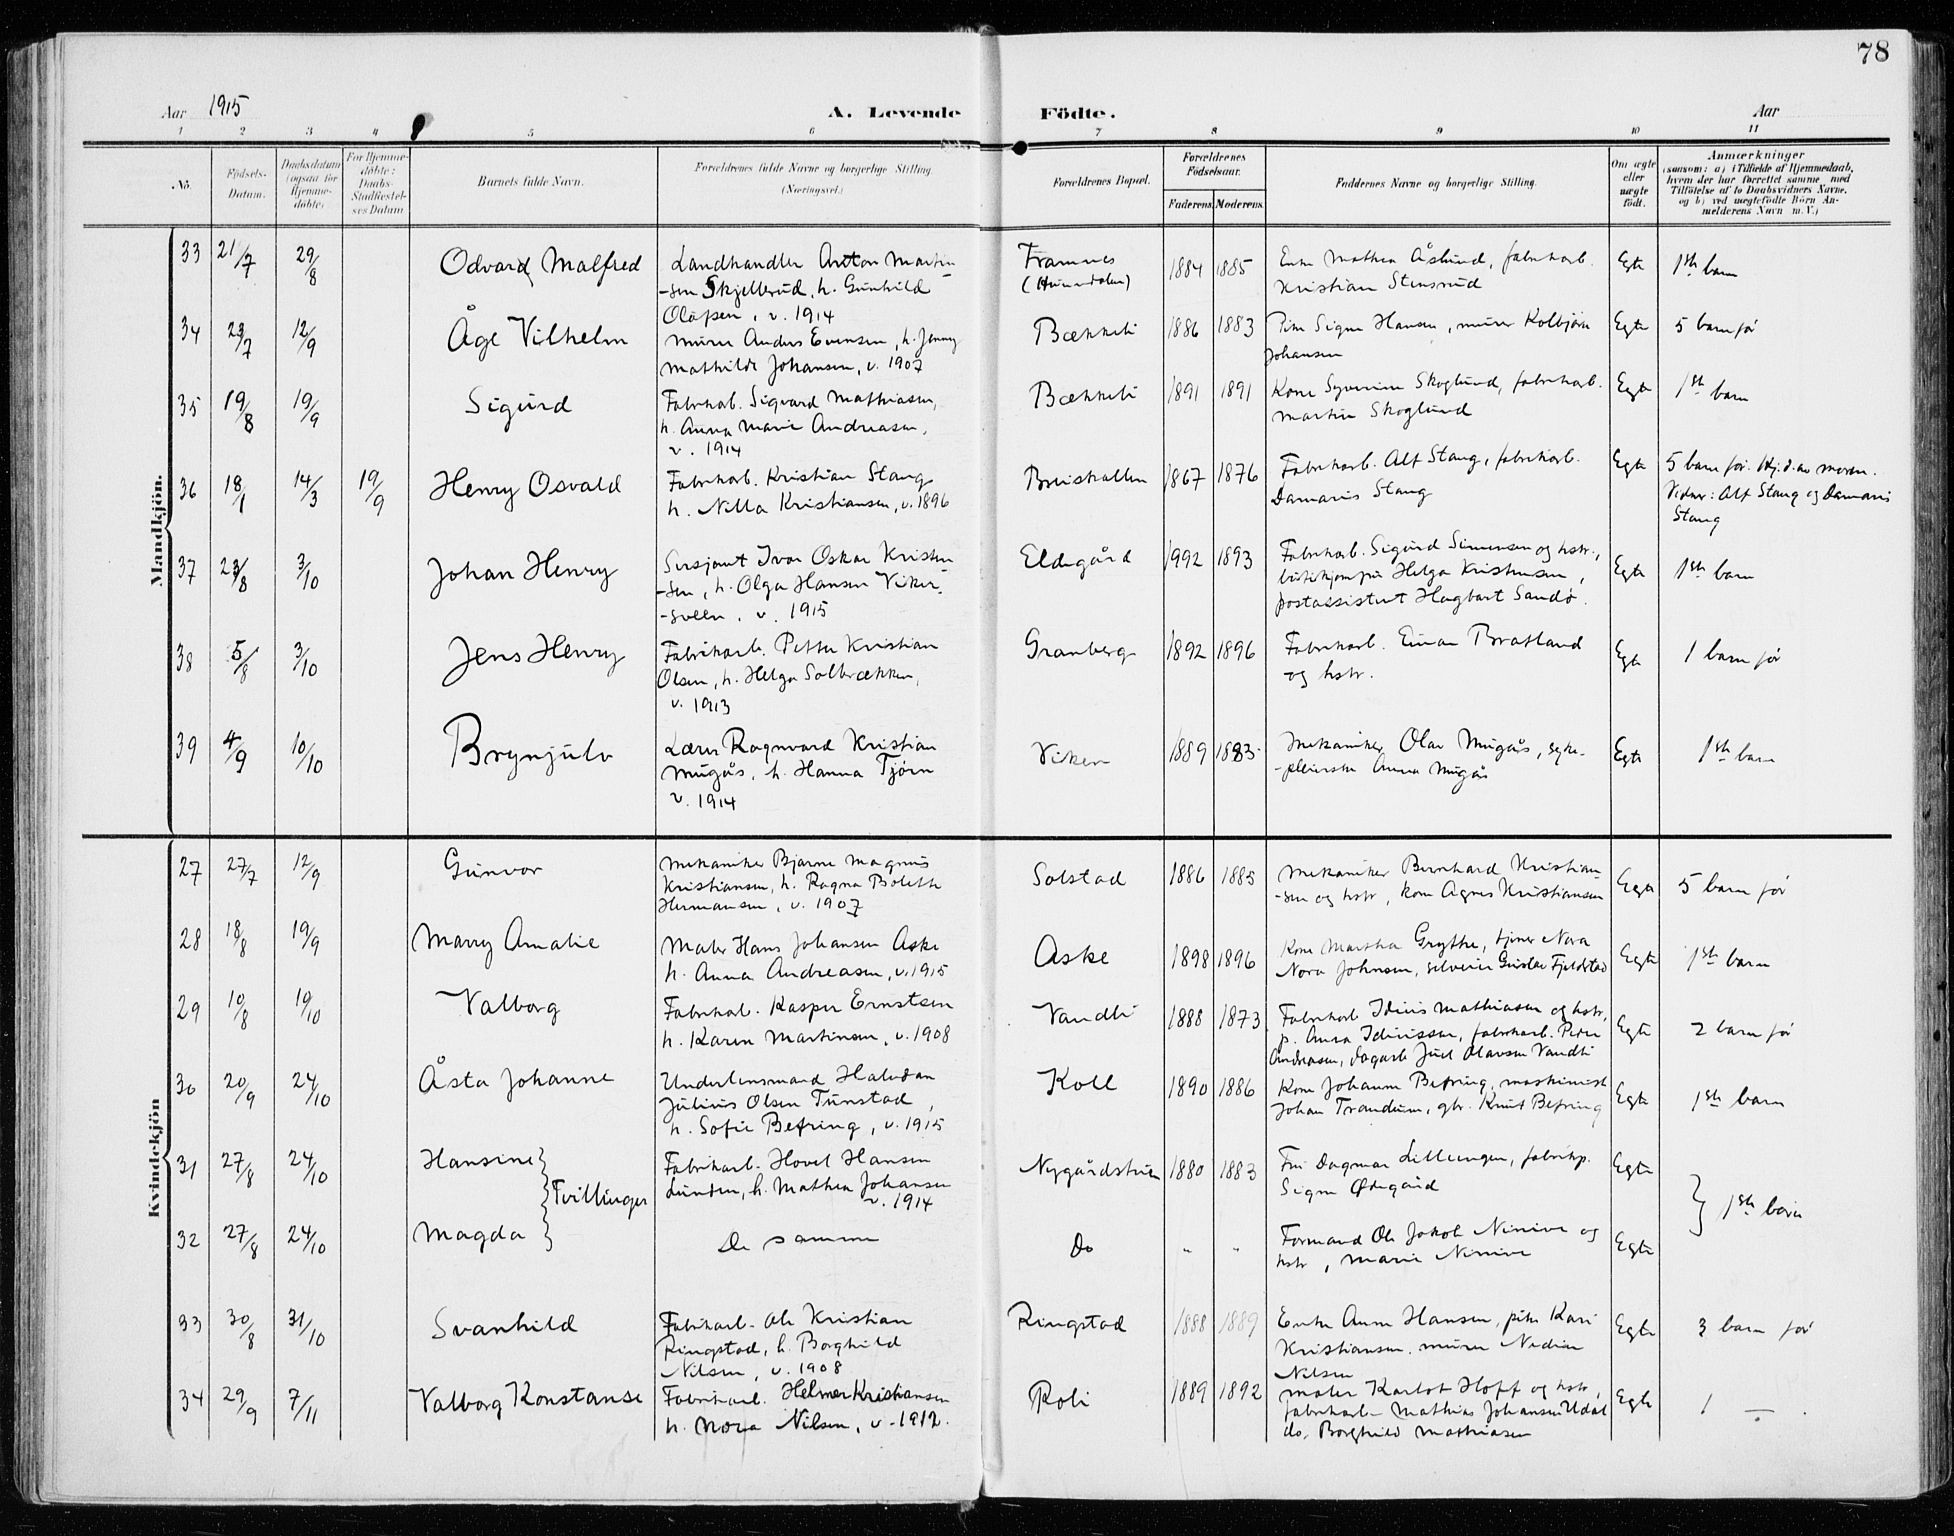 78
Aar 1915
A. Levende Födte.
Aar
1 2 3 4 5 6 7 8 9 10 11
No.
Födsels-Datum.
Daabsdatum (ogsaa for Hjemme-döbte)
For Hjemme-döbte: Daabs-Stadfæstel-ses Datum
Barnets fulde Navn.
Forældrenes fulde Navne og borgerlige Stilling.
(Næringsvei.)
Forældrenes Bopæl.
Forældrenes Födselsaar.
Faderens. Moderens.
Faddernes Navne og borgerlige Stilling.
Om ægte eller uægte födt.
Anmærkninger
(saasom: a) i Tilfælde af Hjemmedaab,
hvem der har forrettet samme med
Tilföielse af to Daabsvidners Navne,
og b) ved uægtefödte Börn An-
melderens Navn m. V.)
Mandkjön.
33 21/7 29/8 Odvard Malfred Landhandler Anton Martin
-sen Skjellerud, h. Gunhild
Olåpsen, v. 1914
Framnes
(Hunndalen)
1884 1885
Enke Mathea Åslund, fabrikarb.
Kristian Stensrud
Egte 1ste barn
34 23/7 12/9 Åge Vilhelm murer Anders Evensen, h. Jenny
Mathilde Johansen, v. 1907
Bækkeli 1886 1883
Pike Signe Hansen, murer Kolbjørn
Johansen
Egte 5 barn før
35 19/8 19/9 Sigurd Fabrikarb. Sigvard Mathiasen,
h. Anna Marie Andreasen,
v. 1914
Bækkeli 1891 1891
Kone Syverine Skoglund, fabrikarb.
Martin Skoglund
Egte 1ste barn
36 18/1 14/3 19/9 Henry Osvald Fabrikarb. Kristian Stang
h. Nilla Kristiansen, v. 1896
Breiskallen 1867 1876
Fabrikarb. Alf Stang, fabrikarb.
Damaris Stang
Egte 5 barn før. Hj.d. av moren.
Vidner: Alf Stang og Damaris
Stang
37 23/8 3/10 Johan Henry Sersjant Ivar Oskar Kristen
-sen, h. Olga Hansen Viker-
-sveen, v. 1915
Eldegård 1992 1893
Fabrikarb. Sigurd Simensen og hstr.,
butikjomfru Helga Kristensen,
postassistent Hagbart Sandø.
Egte 1ste barn
38 5/8 3/10 Jens Henry Fabrikarb. Petter Kristian
Olsen, h. Helga Solbrækken,
v. 1913
Granberg 1892 1896
Fabrikarb. Einar Bratland
og hstr.
Egte 1 barn før
39 4/9 10/10 Brynjulv Lærer Ragnvard Kristian
Mugås, h. Hanna Tjørn
v. 1914
Viken 1889 1883
Mekaniker Olav Mugås, syke-
-pleierske Anna Mugås
Egte 1ste barn
Kvindekjön
27 27/7 12/9 Gunvor Mekaniker Bjarne Magnus
Kristiansen, h. Ragna Bolette
Hermansen, v. 1907
Solstad 1886 1885
Mekaniker Bernhard Kristian
-sen og hstr, kone Agnes Kristiansen
Egte 5 barn før
28 18/8 19/9 Marry Amalie Maler Hans Johansen Aske
h. Anna Andreasen, v. 1915
Aske 1898 1896
Kone Martha Grythe, tjener Nora
Nora Johnsen, Gustav Fjeldstad
Egte 1ste barn
29 10/8 10/10 Valborg Fabrikarb. Kasper Ernstsen
h. Karen Martinsen, v. 1908
Vandli 1888 1873
Fabrikarb Idiris Mathiasen og hstr,
p. Anna Idirissen, fabrikarb. Peder
Andreasen, dagarb Juel Olavsen Vandli
Egte 2 barn før
30 20/9 24/10 Åsta Johanne Underlensmand Halvdan
Julius Olsen Tunstad,
h. Sofie Befring, v. 1915
Koll 1890 1886
Kone Johanne Befring, maskinist
Johan Trandum, gbr. Knut Befring
Egte 1ste barn
31 27/8 24/10 Hansine } Tvillinger Fabrikarb. Hovel Hansen
Lunden, h. Mathea Johansen
v. 1914
Nygårdstuen 1880 1883
Fru Dagmar Lillengen, fabrikp.
Signe Ødegård
Egte } 1ste barn
32 27/8 24/10 Magda De samme
Do " "
Formand Ole Jakob Ninive og
hstr, Marie Ninive
Egte
33 30/8 31/10 Svanhild Fabrikarb. Ole Kristian
Ringstad, h. Borghild
Nilsen, v. 1908
Ringstad 1888 1889
Enke Anne Hansen, pike Kari
Kristiansen. murer
Nilsen
Egte 3 barn før
34 29/9 7/11 Valborg Konstanse Fabrikarb. Helmer Kristiansen
h. Nora Nilsen, v. 1912.
Roli 1889 1892
Maler Karlot Hoff og hstr,
fabrikarb Mathias Johansen
do. Borghild Mathiasen
Egte 1 —